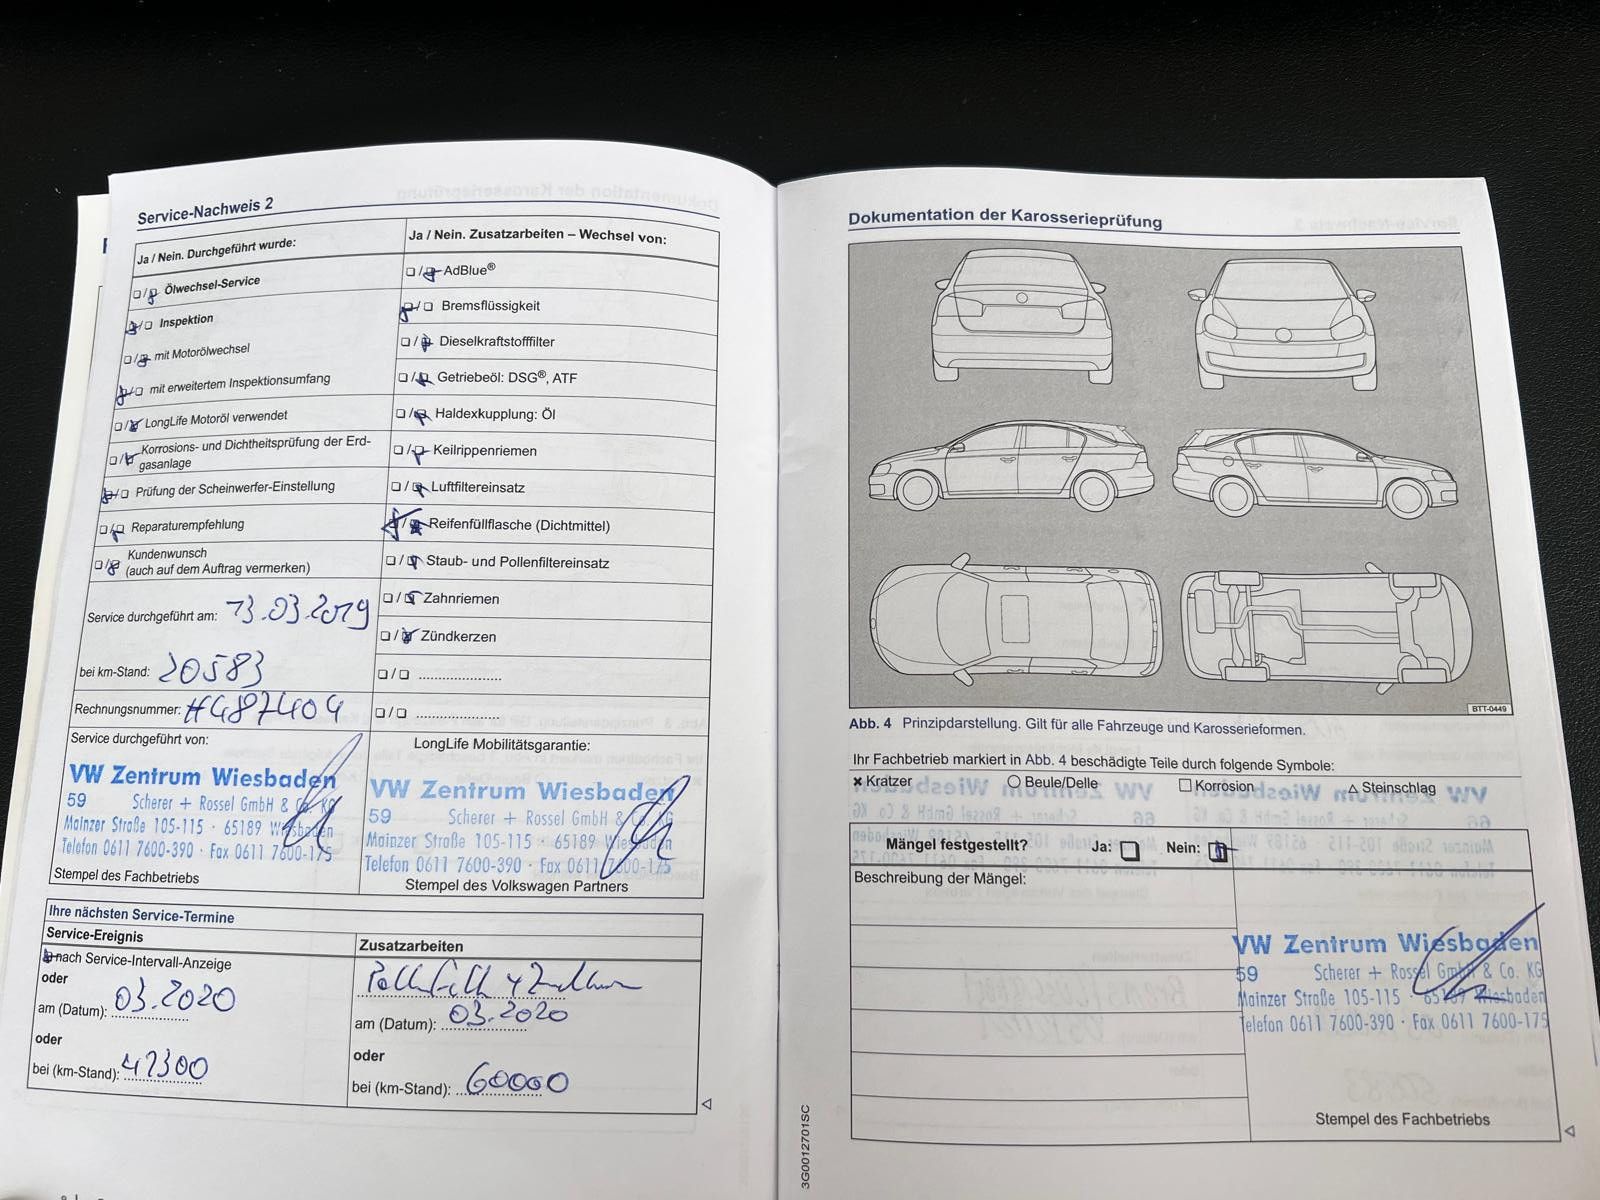 Service-Nachweis 2
Ja / Nein. Durchgeführt wurde:
Ölwechsel-Service
Inspektion
mit Motorölwechsel
mit erweitertem Inspektionsumfang
LongLife Motoröl verwendet
Korrosions- und Dichtheitsprüfung der Erd-
gasanlage
Prüfung der Scheinwerfer-Einstellung
Reparaturempfehlung
Kundenwunsch
(auch auf dem Auftrag vermerken)
Service durchgeführt am: 13.03.2019
bei km-Stand: 20583
Rechnungsnummer: #4874404
Service durchgeführt von:
VW Zentrum Wiesbaden
59 Scherer + Rossel GmbH & Co. KG
Mainzer Straße 105-115 · 65189 Wiesbaden
Telefon 0611 7600-390 · Fax 0611 7600-175
Stempel des Fachbetriebs
Ja / Nein. Zusatzarbeiten – Wechsel von:
AdBlue®
Bremsflüssigkeit
Dieselkraftstofffilter
Getriebeöl: DSG®, ATF
Haldexkupplung: Öl
Keilrippenriemen
Luftfiltereinsatz
Reifenfüllflasche (Dichtmittel)
Staub- und Pollenfiltereinsatz
Zahnriemen
Zündkerzen
LongLife Mobilitätsgarantie:
VW Zentrum Wiesbaden
59 Scherer + Rossel GmbH & Co. KG
Mainzer Straße 105-115 · 65189 Wiesbaden
Telefon 0611 7600-390 · Fax 0611 7600-175
Stempel des Volkswagen Partners
Ihre nächsten Service-Termine
Service-Ereignis
nach Service-Intervall-Anzeige
oder
am (Datum): 03.2020
oder
bei (km-Stand):
Zusatzarbeiten
am (Datum): 03.2020
oder
bei (km-Stand): 60000
Dokumentation der Karosserieprüfung
BTT-0449
Abb. 4 Prinzipdarstellung. Gilt für alle Fahrzeuge und Karosserieformen.
Ihr Fachbetrieb markiert in Abb. 4 beschädigte Teile durch folgende Symbole:
Kratzer Beule/Delle Korrosion Steinschlag
Mängel festgestellt? Ja: Nein:
Beschreibung der Mängel:
VW Zentrum Wiesbaden
59 Scherer + Rossel GmbH & Co. KG
Mainzer Straße 105-115 · 65189 Wiesbaden
Telefon 0611 7600-390 · Fax 0611 7600-175
Stempel des Fachbetriebs
3G0012701SC